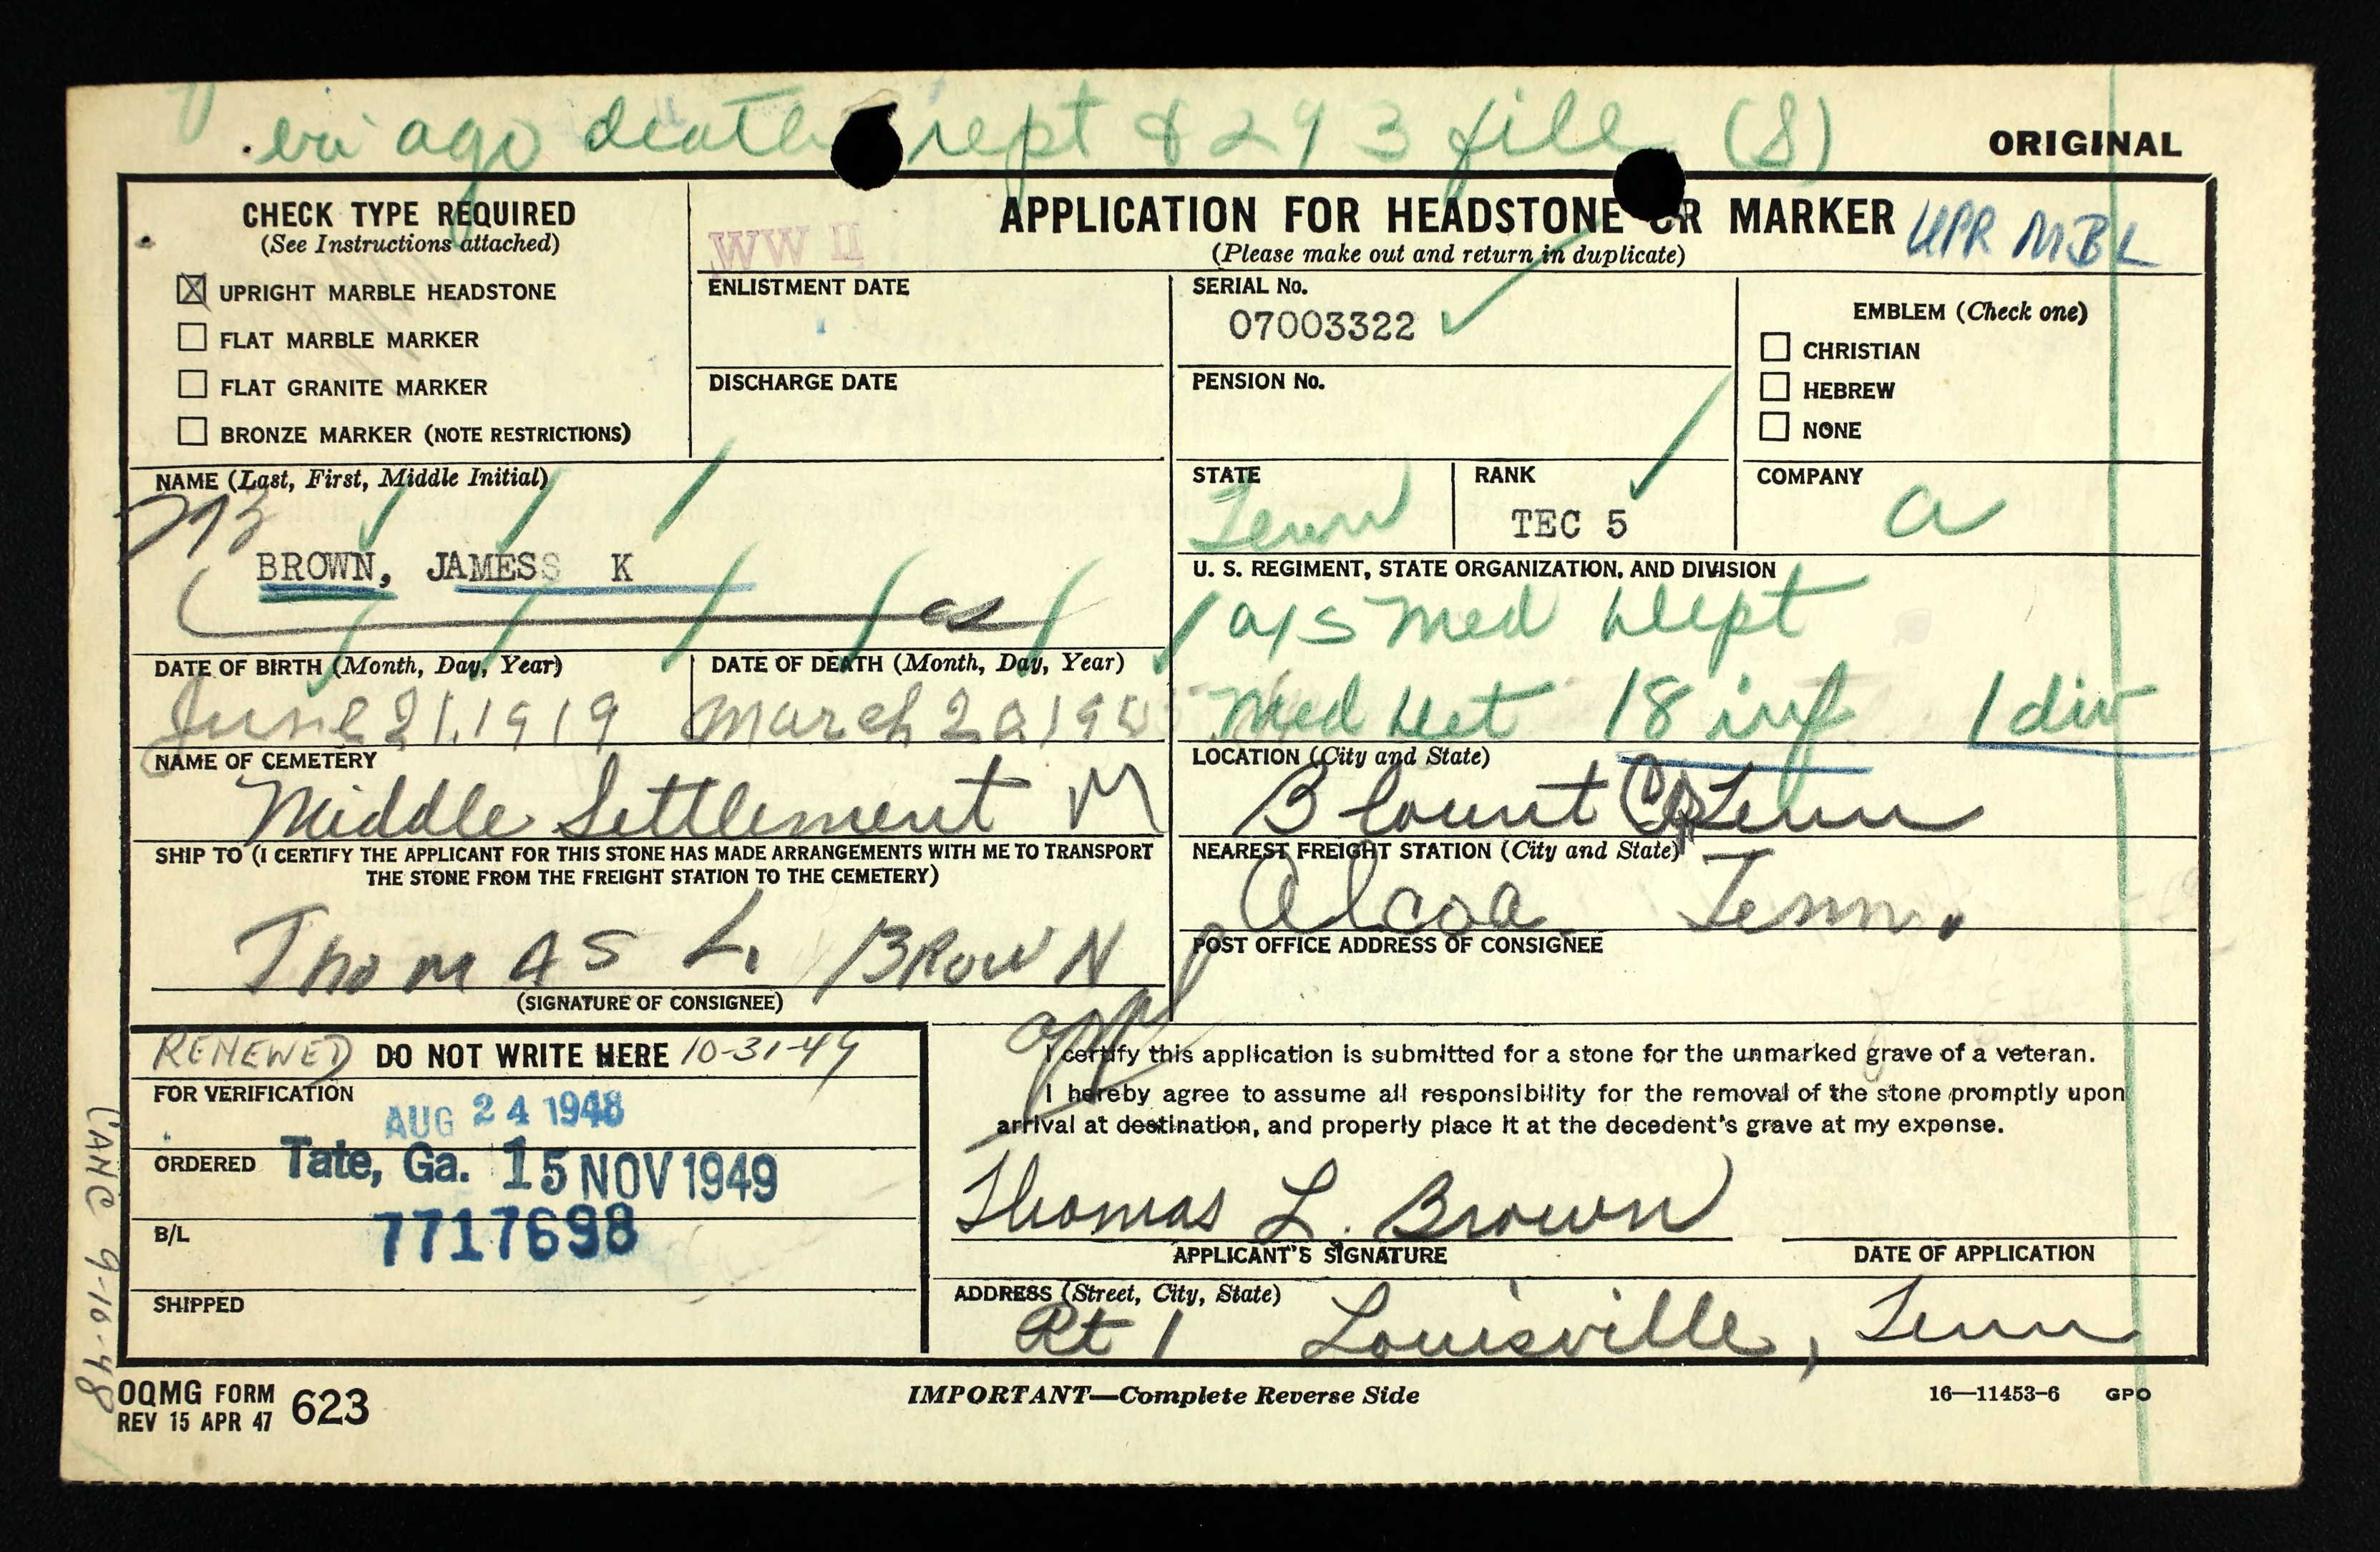 ver ago death rept & 293 file (S)
ORIGINAL
CHECK TYPE REQUIRED
(See Instructions attached)
UPRIGHT MARBLE HEADSTONE
FLAT MARBLE MARKER
FLAT GRANITE MARKER
BRONZE MARKER (NOTE RESTRICTIONS)
WW II
APPLICATION FOR HEADSTONE OR MARKER
UPR MBL
(Please make out and return in duplicate)
ENLISTMENT DATE
DISCHARGE DATE
SERIAL No.
07003322
PENSION No.
EMBLEM (Check one)
CHRISTIAN
HEBREW
NONE
NAME (Last, First, Middle Initial)
293
BROWN, JAMESS K
STATE
Tenn
RANK
TEC 5
COMPANY
a
U. S. REGIMENT, STATE ORGANIZATION, AND DIVISION
a/s Med Dept
Med Det 18 inf 1 div
DATE OF BIRTH (Month, Day, Year)
June 21, 1919
DATE OF DEATH (Month, Day, Year)
March
NAME OF CEMETERY
Middle Settlement
LOCATION (City and State)
Blount Co Tenn
SHIP TO (I CERTIFY THE APPLICANT FOR THIS STONE HAS MADE ARRANGEMENTS WITH ME TO TRANSPORT
THE STONE FROM THE FREIGHT STATION TO THE CEMETERY)
Thomas L. Brown
(SIGNATURE OF CONSIGNEE)
NEAREST FREIGHT STATION (City and State)
Alcoa Tenn.
POST OFFICE ADDRESS OF CONSIGNEE
appl
RENEWED DO NOT WRITE HERE 10-31-49
FOR VERIFICATION
AUG 24 1948
ORDERED Tate, Ga. 15 NOV 1949
B/L 7717698
SHIPPED
I certify this application is submitted for a stone for the unmarked grave of a veteran.
I hereby agree to assume all responsibility for the removal of the stone promptly upon
arrival at destination, and properly place it at the decedent's grave at my expense.
Thomas L. Brown
APPLICANT'S SIGNATURE
DATE OF APPLICATION
ADDRESS (Street, City, State)
Rt 1 Louisville, Tenn
CANC 9-10-48
OQMG FORM 623
REV 15 APR 47
IMPORTANT—Complete Reverse Side
16—11453-6 GPO